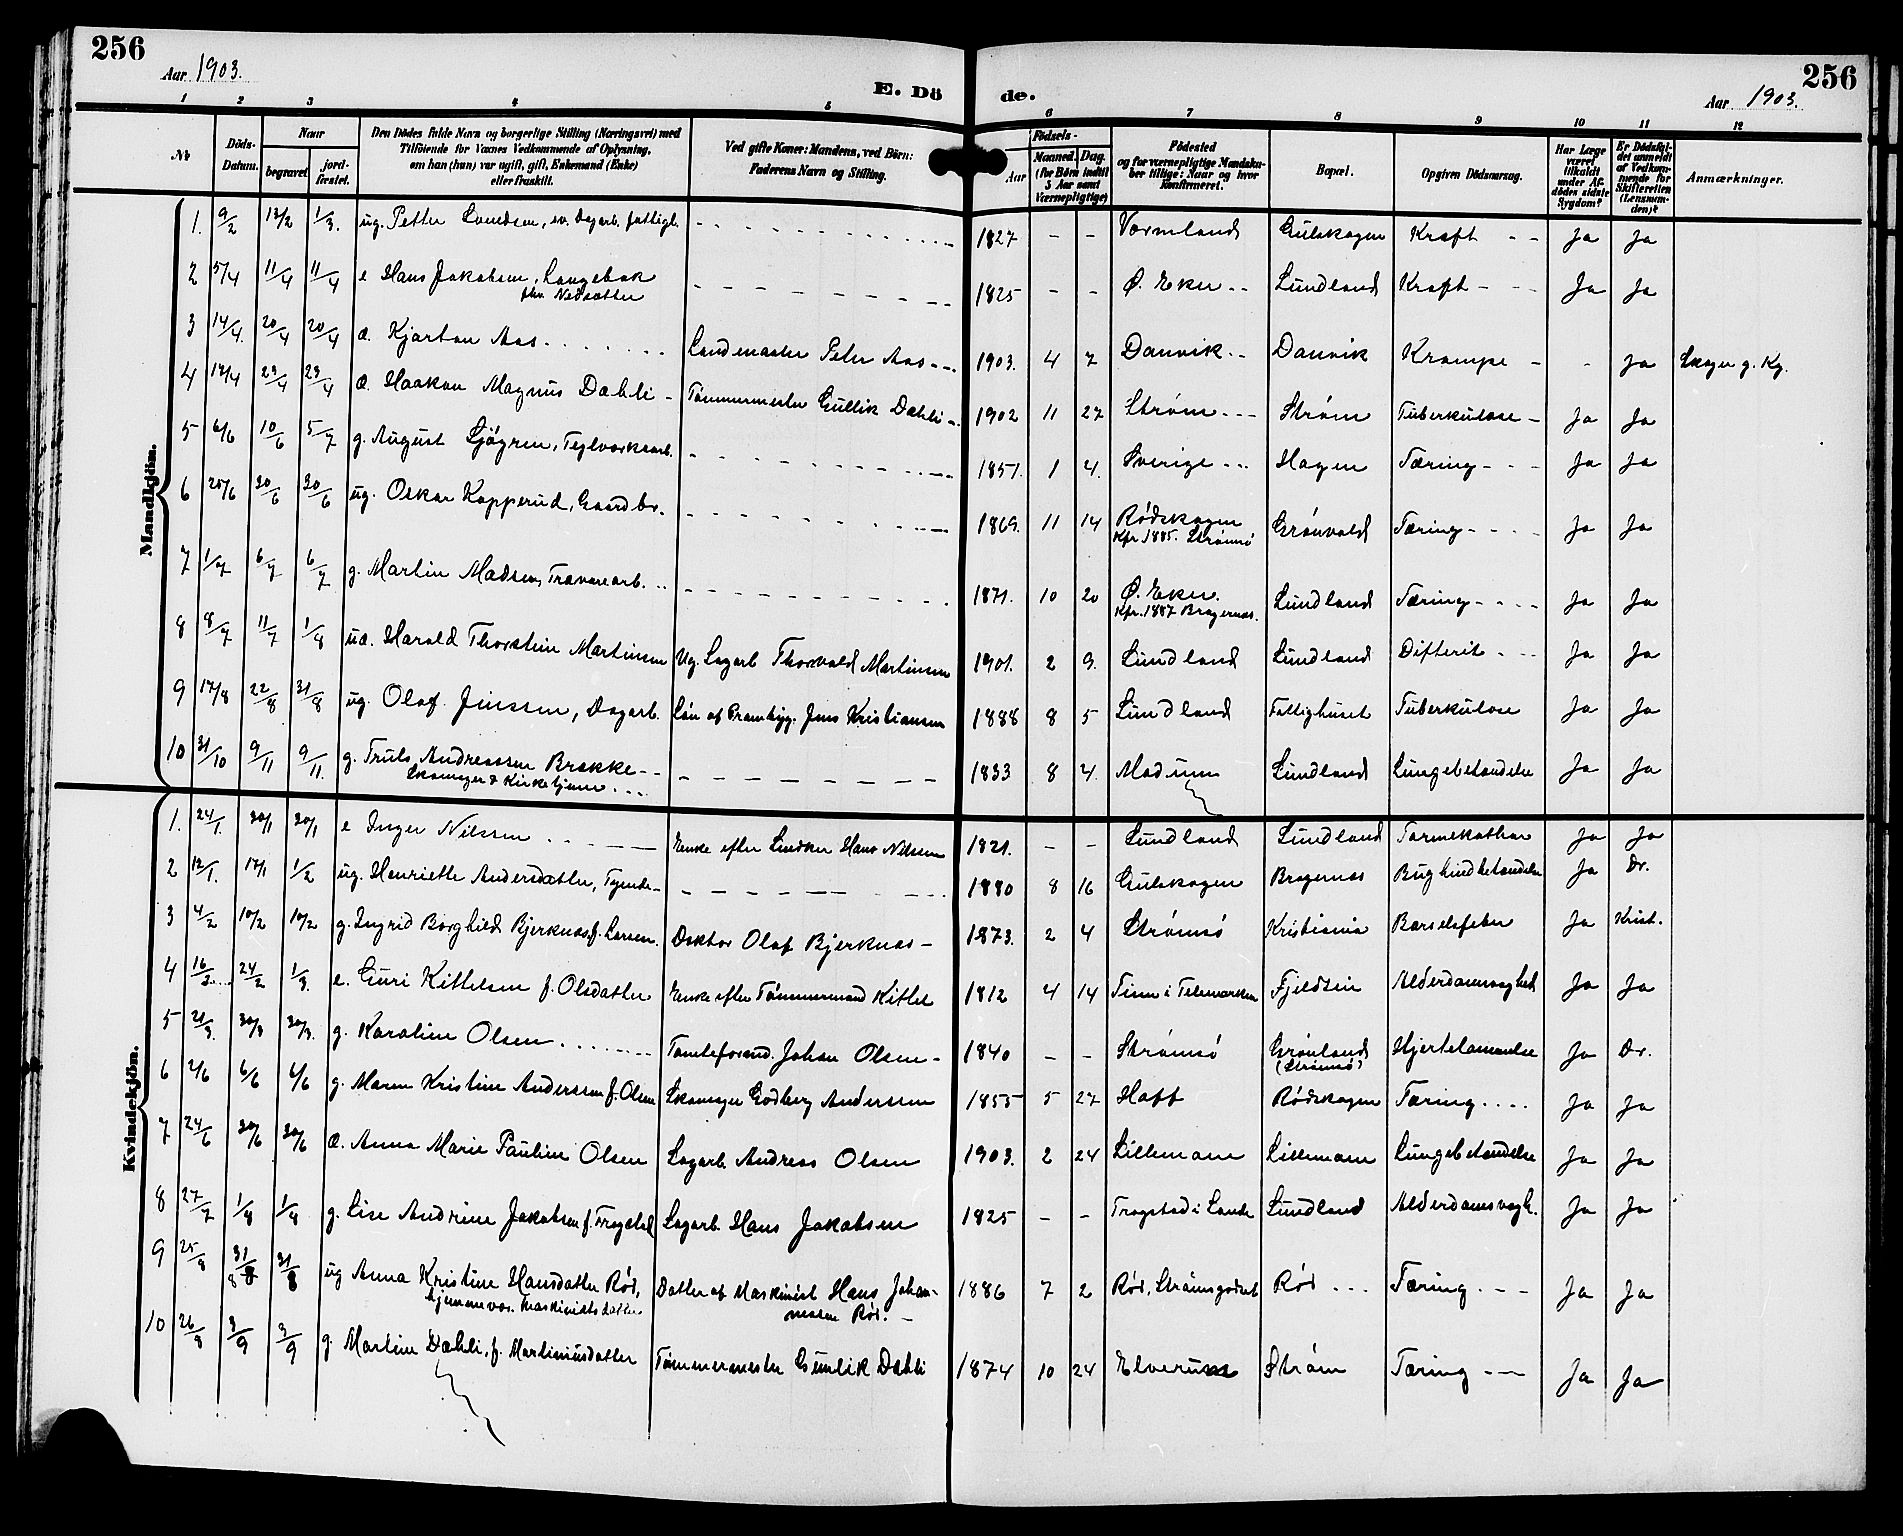 256
Aar 1903.
E. Dö
de.
256
Aar 1903.
1 2 3 4 5 6 7 8 9 10 11 12
No
Döds-Datum.
Naar
begravet
jordfæstet.
Den Dödes fulde Navn og borgerlige Stilling (Næringsvei) med
Tilföiende for Voxnes Vedkommende af Oplysning,
om han (hun) var ugift, gift, Enkemand (Enke)
eller fraskilt.
Ved gifte Koner: Mandens, ved Börn:
Faderens Navn og Stilling.
Födsels-
Aar
Maaned. Dag.
(for Börn indtil
5 Aar samt
Værnepligtige)
Födested
og for værnepligtige Mandskaber tillige: Naar og hvor
Konfirmeret.
Bopæl.
Opgiven Dödsaarsag.
Har Læge
været
tilkaldt
under Afdödes sidste
Sygdom?
Er Dödsfaldet anmeldt
af Vedkommende for
Skifteretten
(Lensmanden)?
Anmærkninger.
Mandkjön.
1. 9/2 13/2 1/3. ug. Petter Svendsen, ev. Dagarb. fattigl. 1827 - - Vermland Gulskogen Kræft Ja Ja
2 5/4 11/4 11/4 e Hans Jakobsen, Langebak 1825 - - Ø. Eker Lundland Kræft Ja Ja
3 14/4. 20/4 20/4 æ. Kjartan Aas Landmaaler Peter Aas 1903. 4 7 Danvik Danvik Krampe - Ja
4 17/4 23/4 23/4 æ. Haakon Magnus Dæhli Tømmermester Gullik Dæhli 1902 11 27 Strøm Strøm Tuberkulose Ja Ja
5 6/6 10/6 5/7 g. August Sjögren, Teglværksarb. 1851. 1 4. Sverige Hagen Tæring Ja Ja
6 25/6 30/6 30/6 ug. Oskar Kopperud, Gaardbr. 1869. 11 14 Rødskogen Grønvold Tæring Ja Ja
Kfr. 1885. Strømsø
7 1/7 6/7 6/7 g. Martin Madsen, Trævarearb. 1871. 10 20 Ø. Eker. Lundland Tæring Ja Ja
Kfr. 1887 Bragernæs.
8 8/7 11/7 1/8 uæ. Harald Thorstein Martinsen Ug. Sagarb Thorvald Martinsen 1901. 2 9. Lundland Lundland Difterit Ja Ja
9 17/8 22/8 31/8 ug. Olaf Jenssen, Dagarb. Søn af Prambyg. Jens Kristiansen 1888 8 5 Lundland Fattighuset Tuberkulose Ja Ja
10 31/10 9/11 9/11. g. Truls Andreassen Brekke 1833 8 4. Modum Lundland Lungebetændelse Ja Ja
Skomager & Kirketjener
Kvindekjön.
1. 24/1. 30/1 30/1 e Inger Nilssen Enke efter Snedker Hans Nilssen 1821. - - Lundland Lundland Tarmekatarr Ja Ja
2 12/1. 17/1 1/2 ug. Henriette Andersdatter, Tjeneste- 1880 8 16 Gulskogen Bragernæs Bughindebetændelse Ja Dr.
3 4/2 10/2 10/2 g. Ingrid Borghild Bjerknæs, f. Larsen. Doktor Olaf Bjerknæs 1873. 2 4 Strømsø Kristiania Barselsfeber Ja Krist.
4 16/2 24/2 1/3. e. Guri Kittelsen f. Olsdatter Enke efter Tømmermand Kittel 1812 4 14 Tinn i Telemarken Fjeldstein Alderdomssvaghed Ja Ja
5 21/3. 30/3 30/3. g. Karoline Olsen Tomteformd. Johan Olsen 1840 - - Strømsø Grønland Hjertelammelse Ja Dr.
(Strømsø)
6 2/6 6/6 6/6 g. Maren Kristine Anderssen f. Olsen Skomager Godberg Anderssen 1855 5 27 Hoff Rødskogen Tæring Ja Ja
7 24/6 30/6 30/6 æ. Anna Marie Pauline Olsen Sagarb. Andreas Olsen 1903. 2 24 Lillemoen Lillemoen Lungebetændelse Ja Ja
8 27/7 1/8 1/8 g. Lise Andrine Jakobsen f. Trogstad Sagarb. Hans Jakobsen 1825 - - Trogstad i Sande Lundland Alderdomssvagh. Ja Ja
9 25/8 31/8 31/8 ug Anna Kristine Hansdatter Rød, Datter af Maskinist Hans Johan- 1886 7 2 Rød, Strømsgodset Rød Tæring Ja Ja
hjemmevær. Maskinists datter nessen Rød.
10 26/8 3/9 3/9 g. Martine Dæhli, f. Martiniusdatter Tømmermester Gunlik Dæhli 1874 10 24 Elverum Strøm Tæring Ja Ja